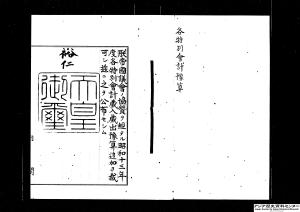 各特別會計豫算
朕帝國議會ノ協贊ヲ經タル昭和十三年
度各特別會計歳入歳出豫算追加ヲ裁
可シ茲ニ之ヲ公布セシム
裕仁
天皇
御璽